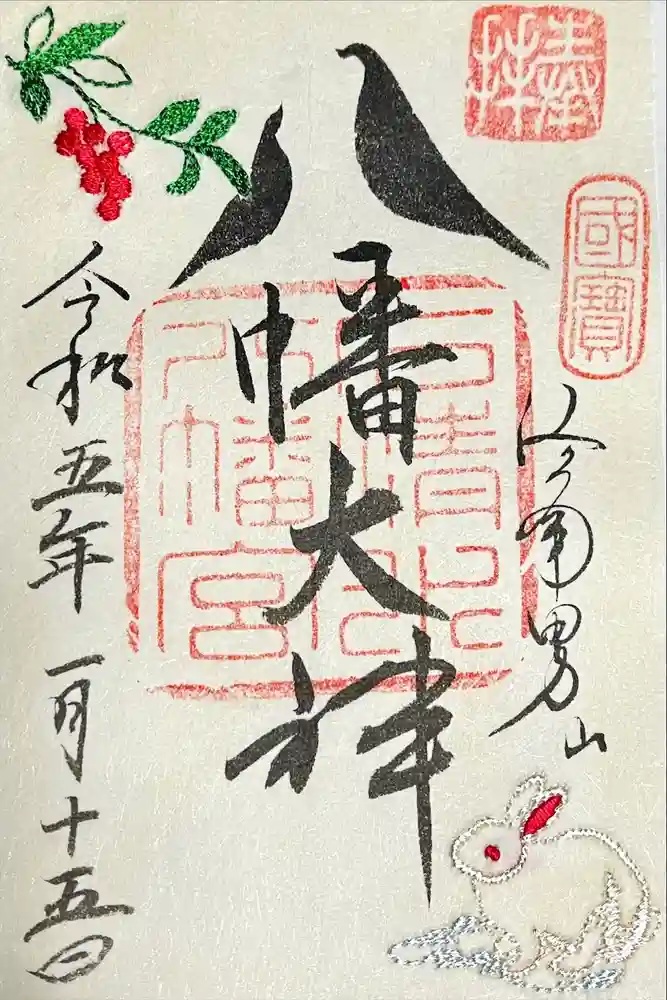 奉拝
國寶
男山
八幡大神
石清水
八幡宮
令和五年一月十五日